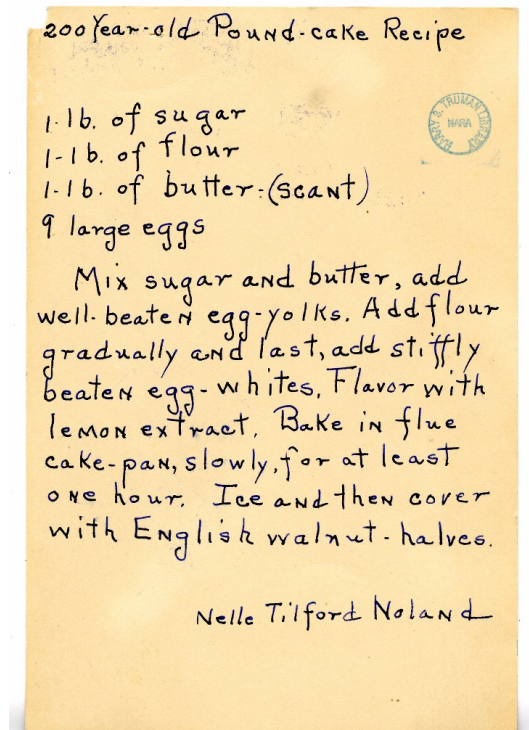 200 Year-old Pound-cake Recipe
HARRY S. TRUMAN LIBRARY
NARA
1-lb. of sugar
1-lb. of flour
1-lb. of butter-(scant)
9 large eggs
Mix sugar and butter, add
well-beaten egg-yolks. Add flour
gradually and last, add stiffly
beaten egg-whites. Flavor with
lemon extract. Bake in flue
cake-pan, slowly, for at least
one hour. Ice and then cover
with English walnut-halves.
Nelle Tilford Noland